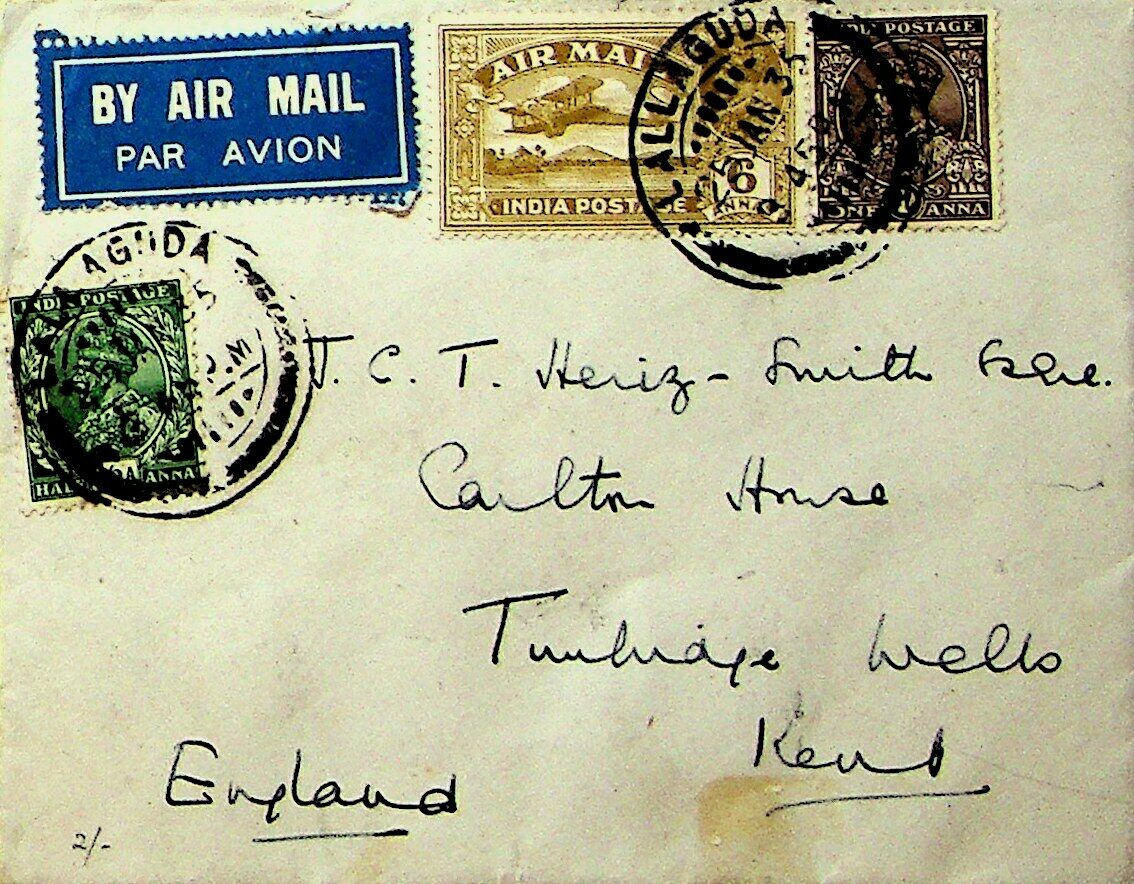 BY AIR MAIL
PAR AVION
AIR MAIL
INDIA POSTAGE
6
ANNAS
POSTAGE
ONE 1 ANNA
LALLAGUDA
JAN 35
INDIA POSTAGE
HALF ANNA
LALLAGUDA
J. C. T. Heriz-Smith Esqre.
Carlton House
Tunbridge Wells
Kent
England
2/-